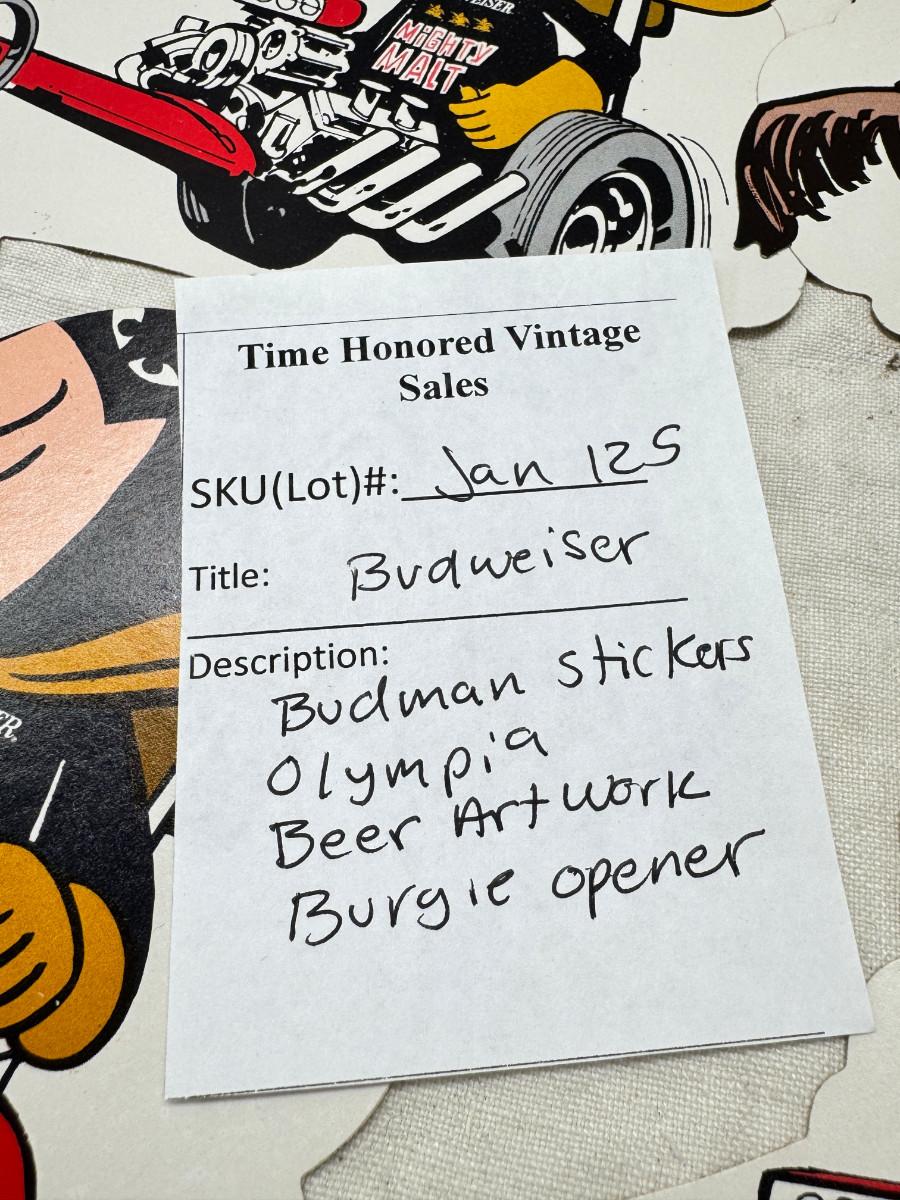 WEISER
MIGHTY
MALT
Time Honored Vintage
Sales
SKU(Lot)#: Jan 125
Title: Budweiser
Description:
Budman stickers
Olympia
Beer Artwork
Burgie opener
ER.